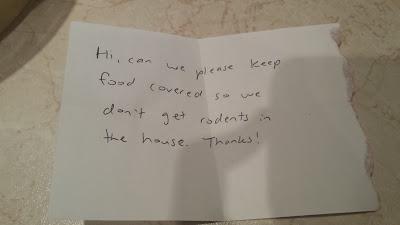 Hi, can we please keep
food covered so we
don't get rodents in
the house. Thanks!